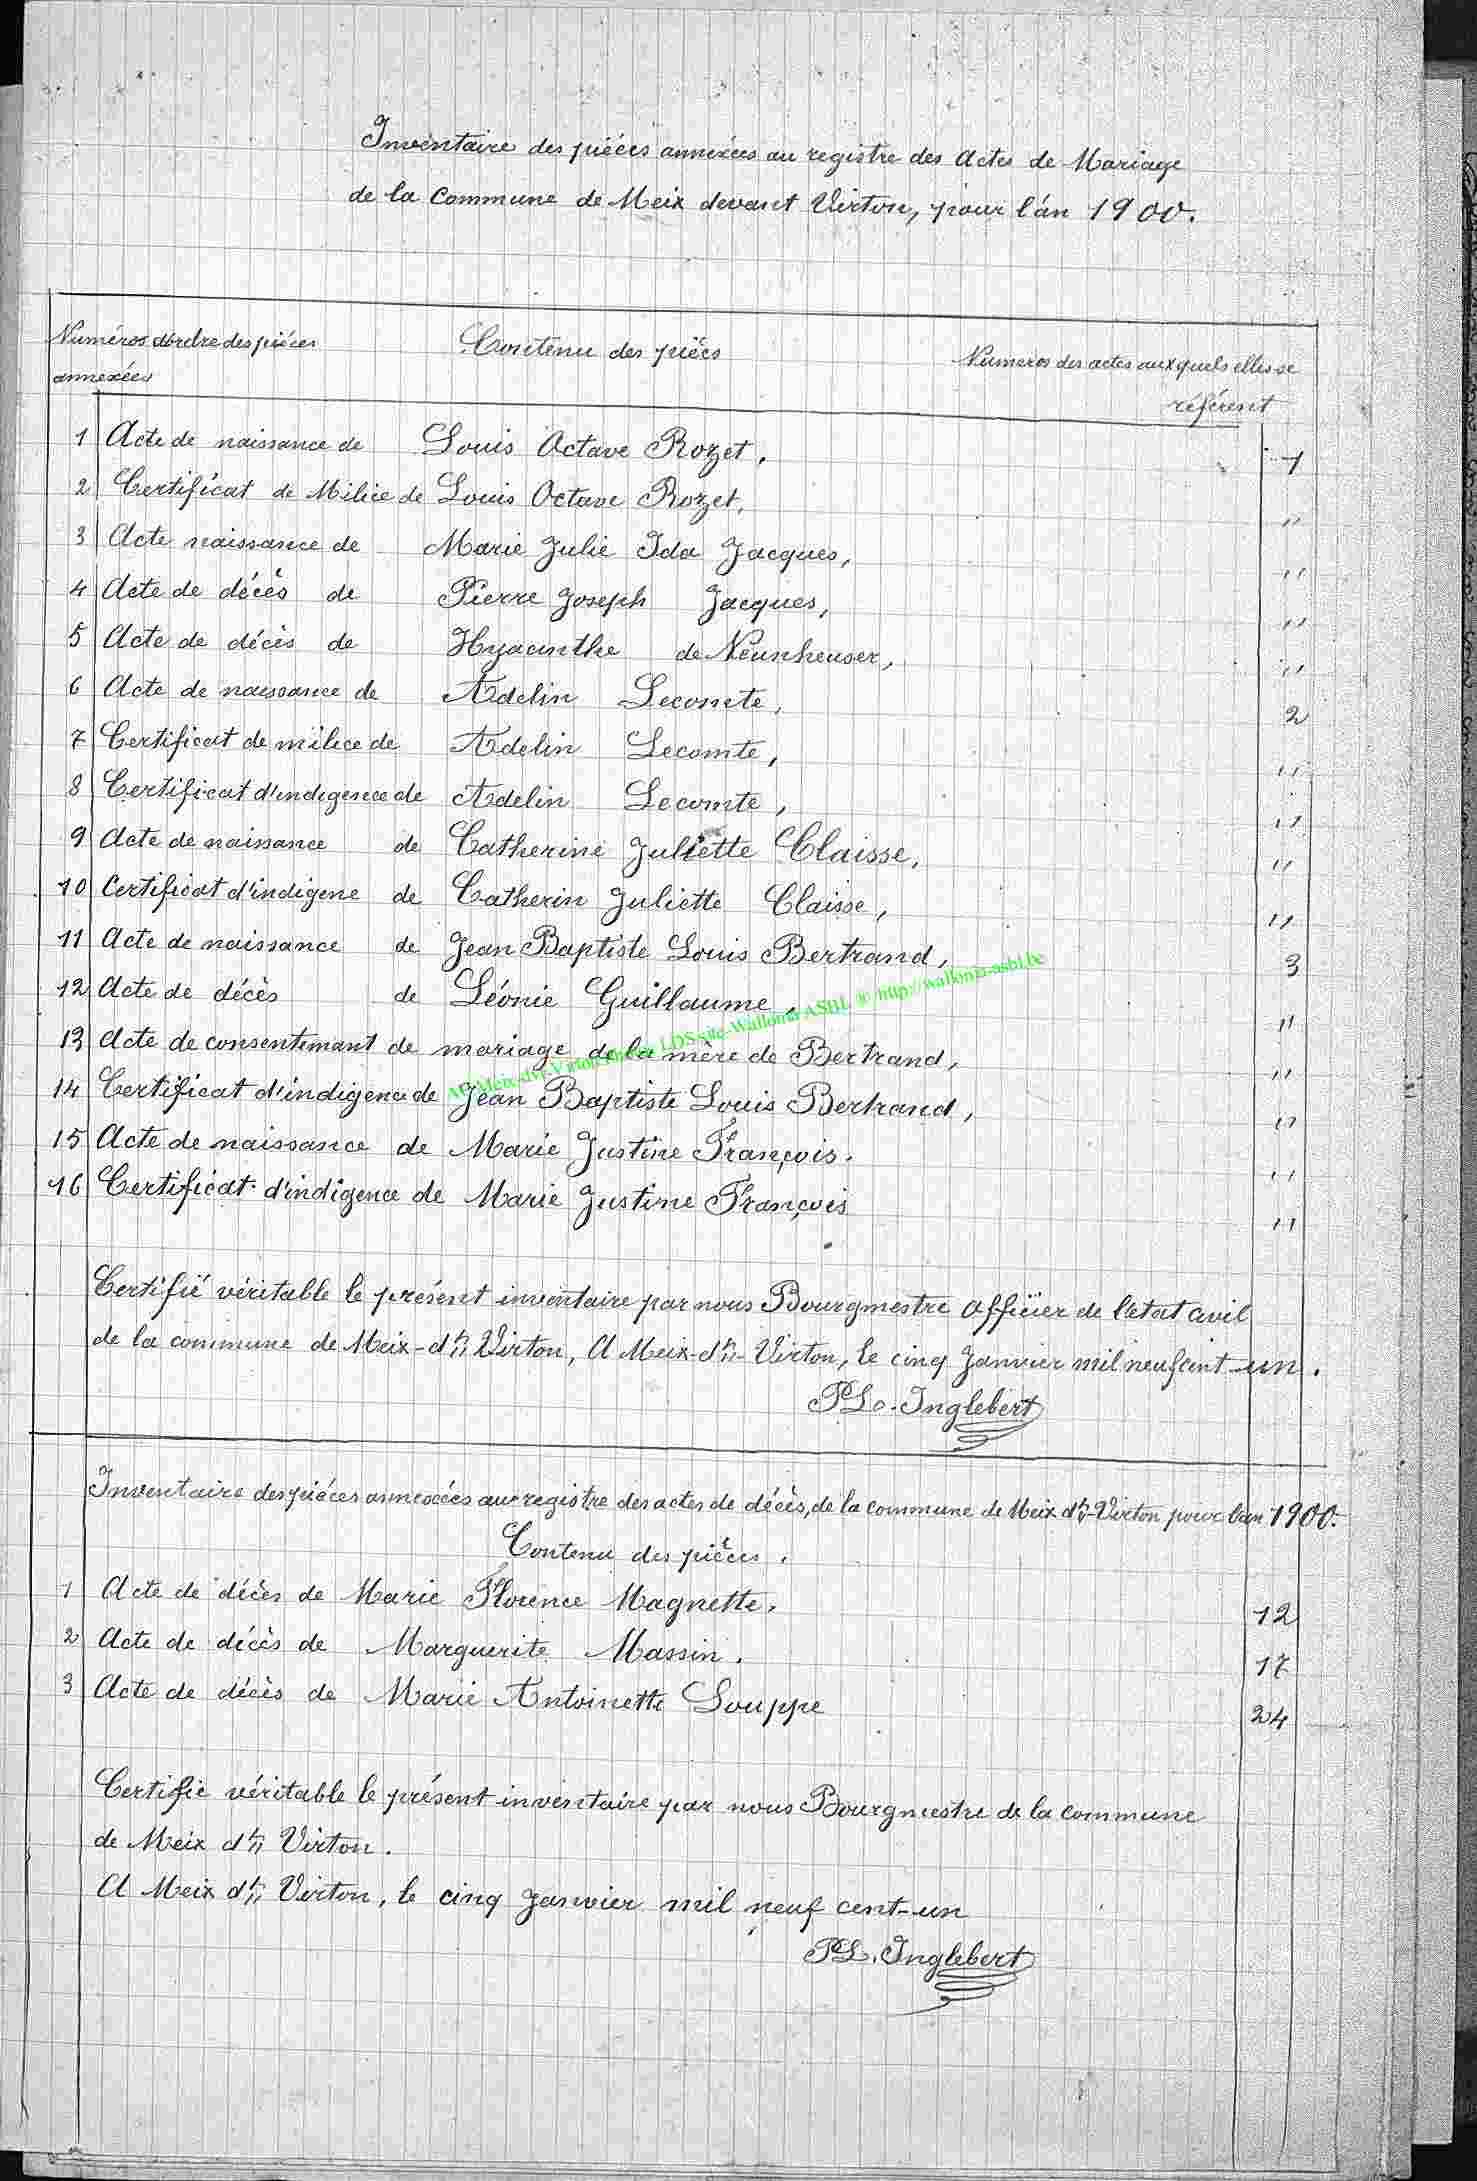 Inventaire des pièces annexées au registre des Actes de Mariage
de la Commune de Meix devant Virton, pour l'an 1900.
Numéros d'ordre des pièces annexées
Contenu des pièces
Numeros des actes auxquels elles se référent
1 Acte de naissance de Louis Octave Rozet. 1
2 Certificat de Milice de Louis Octave Rozet, "
3 Acte naissance de Marie Julie Ida Jacques, "
4 Acte de décès de Pierre Joseph Jacques, "
5 Acte de décès de Hyacinthe de Neunheuser, "
6 Acte de naissance de Adelin Lecomte, 2
7 Certificat de milice de Adelin Lecomte, "
8 Certificat d'indigence de Adelin Lecomte, "
9 Acte de naissance de Catherine Juliette Claisse, "
10 Certificat d'indigene de Catherin Juliette Claisse, "
11 Acte de naissance de Jean Baptiste Louis Bertrand, 3
12 Acte de décès de Léonie Guillaume, "
13 Acte de consentemant de mariage de la mère de Bertrand, "
14 Certificat d'indigence de Jean Baptiste Louis Bertrand, "
15 Acte de naissance de Marie Justine François. "
16 Certificat d'indigence de Marie Justine François "
LDS site Wallonia ASBL @ http://wallonia-asbl.be
Certifié véritable le présent inventaire par nous Bourgmestre Officier de l'état civil
de la commune de Meix-dt Virton, A Meix-dt-Virton, le cinq Janvier mil neuf cent un.
PLo. Inglebert
Inventaire des pièces annexées aux registre des actes de décès, de la commune de Meix dt-Virton pour l'an 1900.
Contenu des pièces.
1 Acte de décès de Marie Florence Magnette. 12
2 Acte de décès de Marguerite Massin. 17
3 Acte de décès de Marie Antoinette Souppe 24
Certifie véritable le présent inventaire par nous Bourgmestre de la commune
de Meix dt Virton.
A Meix dt Virton, le cinq Janvier mil neuf cent-un
PL. Inglebert